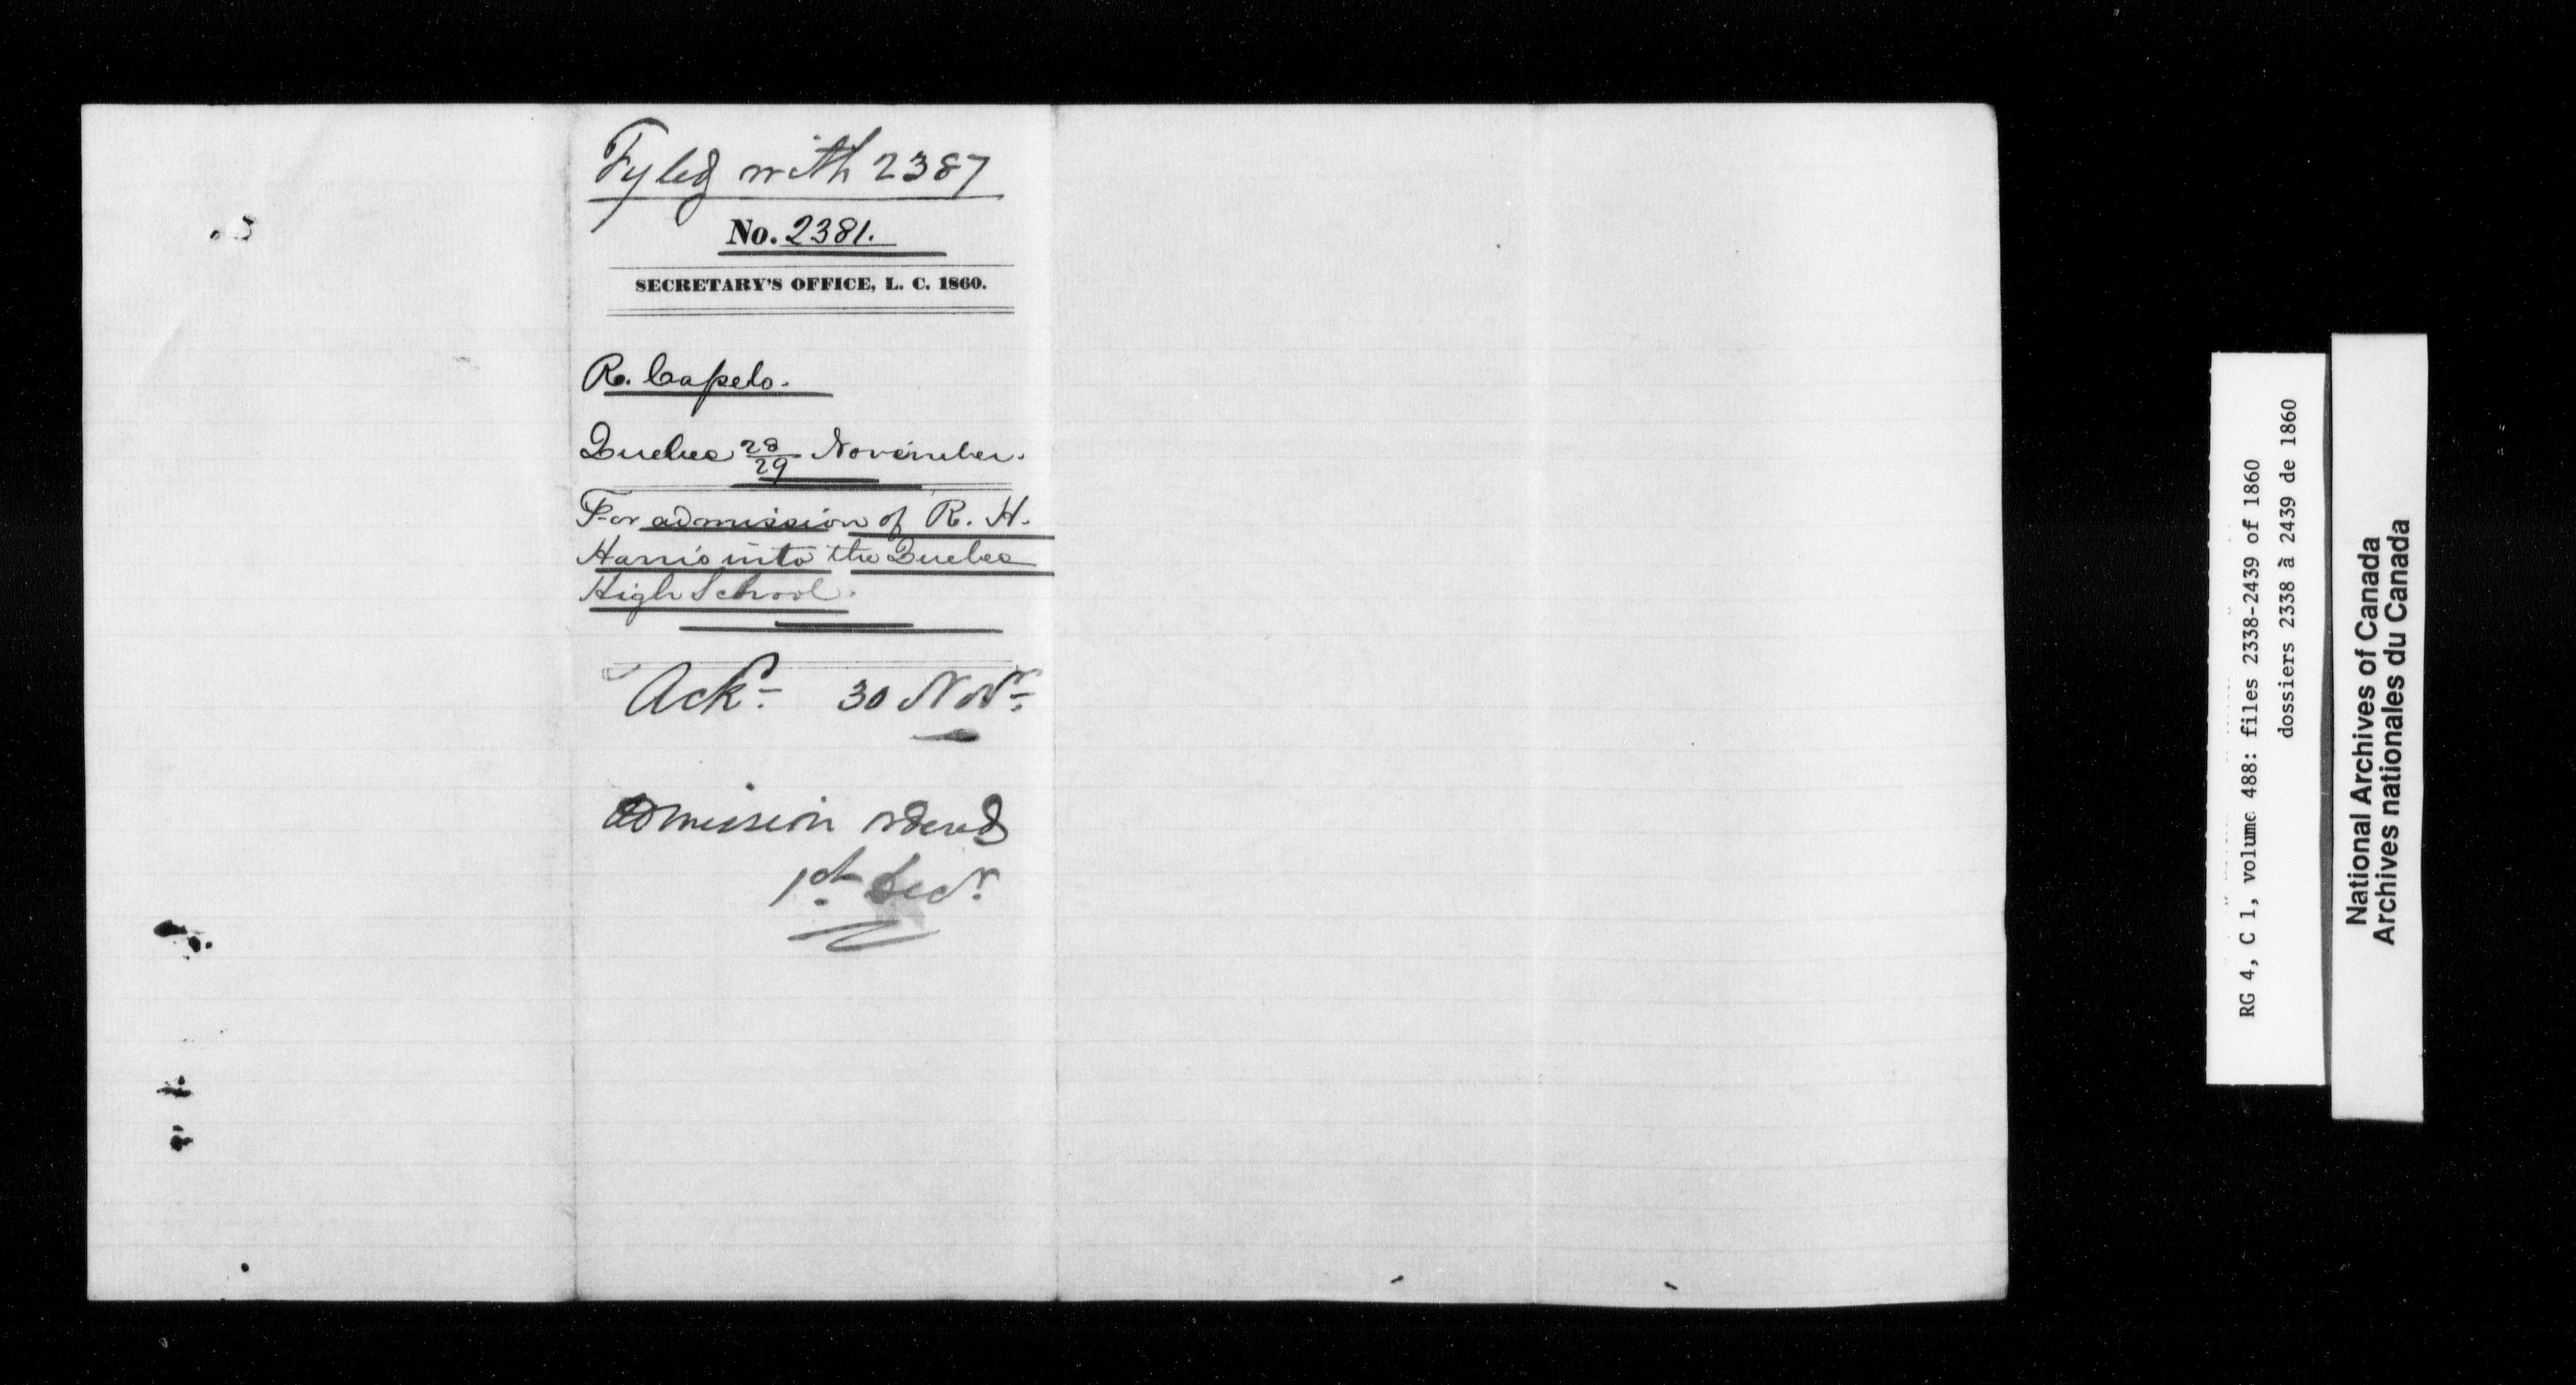 Fyled with 2387
No. 2381.
SECRETARY'S OFFICE, L. C. 1860.
R. Capelo.
Quebec 28/29 November.
For admission of R. H.
Harris into the Quebec
High School.
Ackd. 30 Novr.
admission ordered
1st Decr.
RG 4, C 1, volume 488: files 2338-2439 of 1860
dossiers 2338 à 2439 de 1860
National Archives of Canada
Archives nationales du Canada